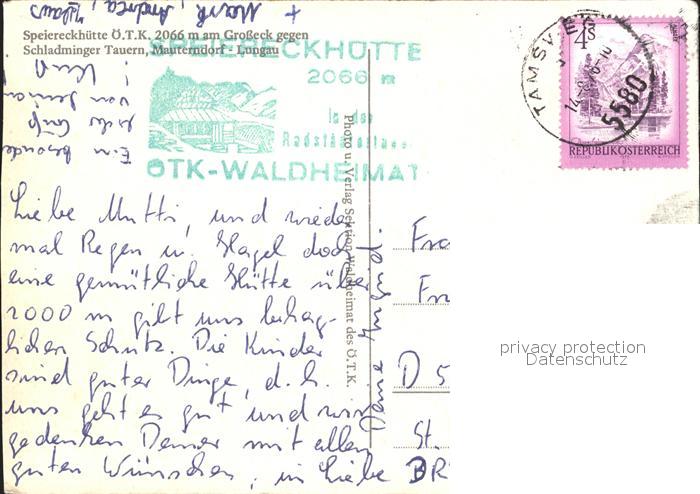 + Mark, Andrea, Klaus
Speiereckhütte Ö.T.K. 2066 m am Großeck gegen
Schladminger Tauern, Mauterndorf - Lungau
SPEIERECKHÜTTE
2066 m
In den
Radstädter
ÖTK-WALDHEIMAT
TAMSWEG
5580
4 S
REPUBLIK ÖSTERREICH
Ein besonde
von
Liebe Mutti, und wieder
mal Regen u. Hagel doch
eine gemütliche Hütte über
2000 m gibt uns behag-
lichen Schutz. Die Kinder
sind guter Dinge, d.h.
uns geht es gut und wir
gedenken Deiner mit allen
guten Wünschen, in Liebe
Photo u. Verlag Sektion Waldheimat des Ö.T.K.
Fra
Fr
D 5
St.
BR
privacy protection
Datenschutz